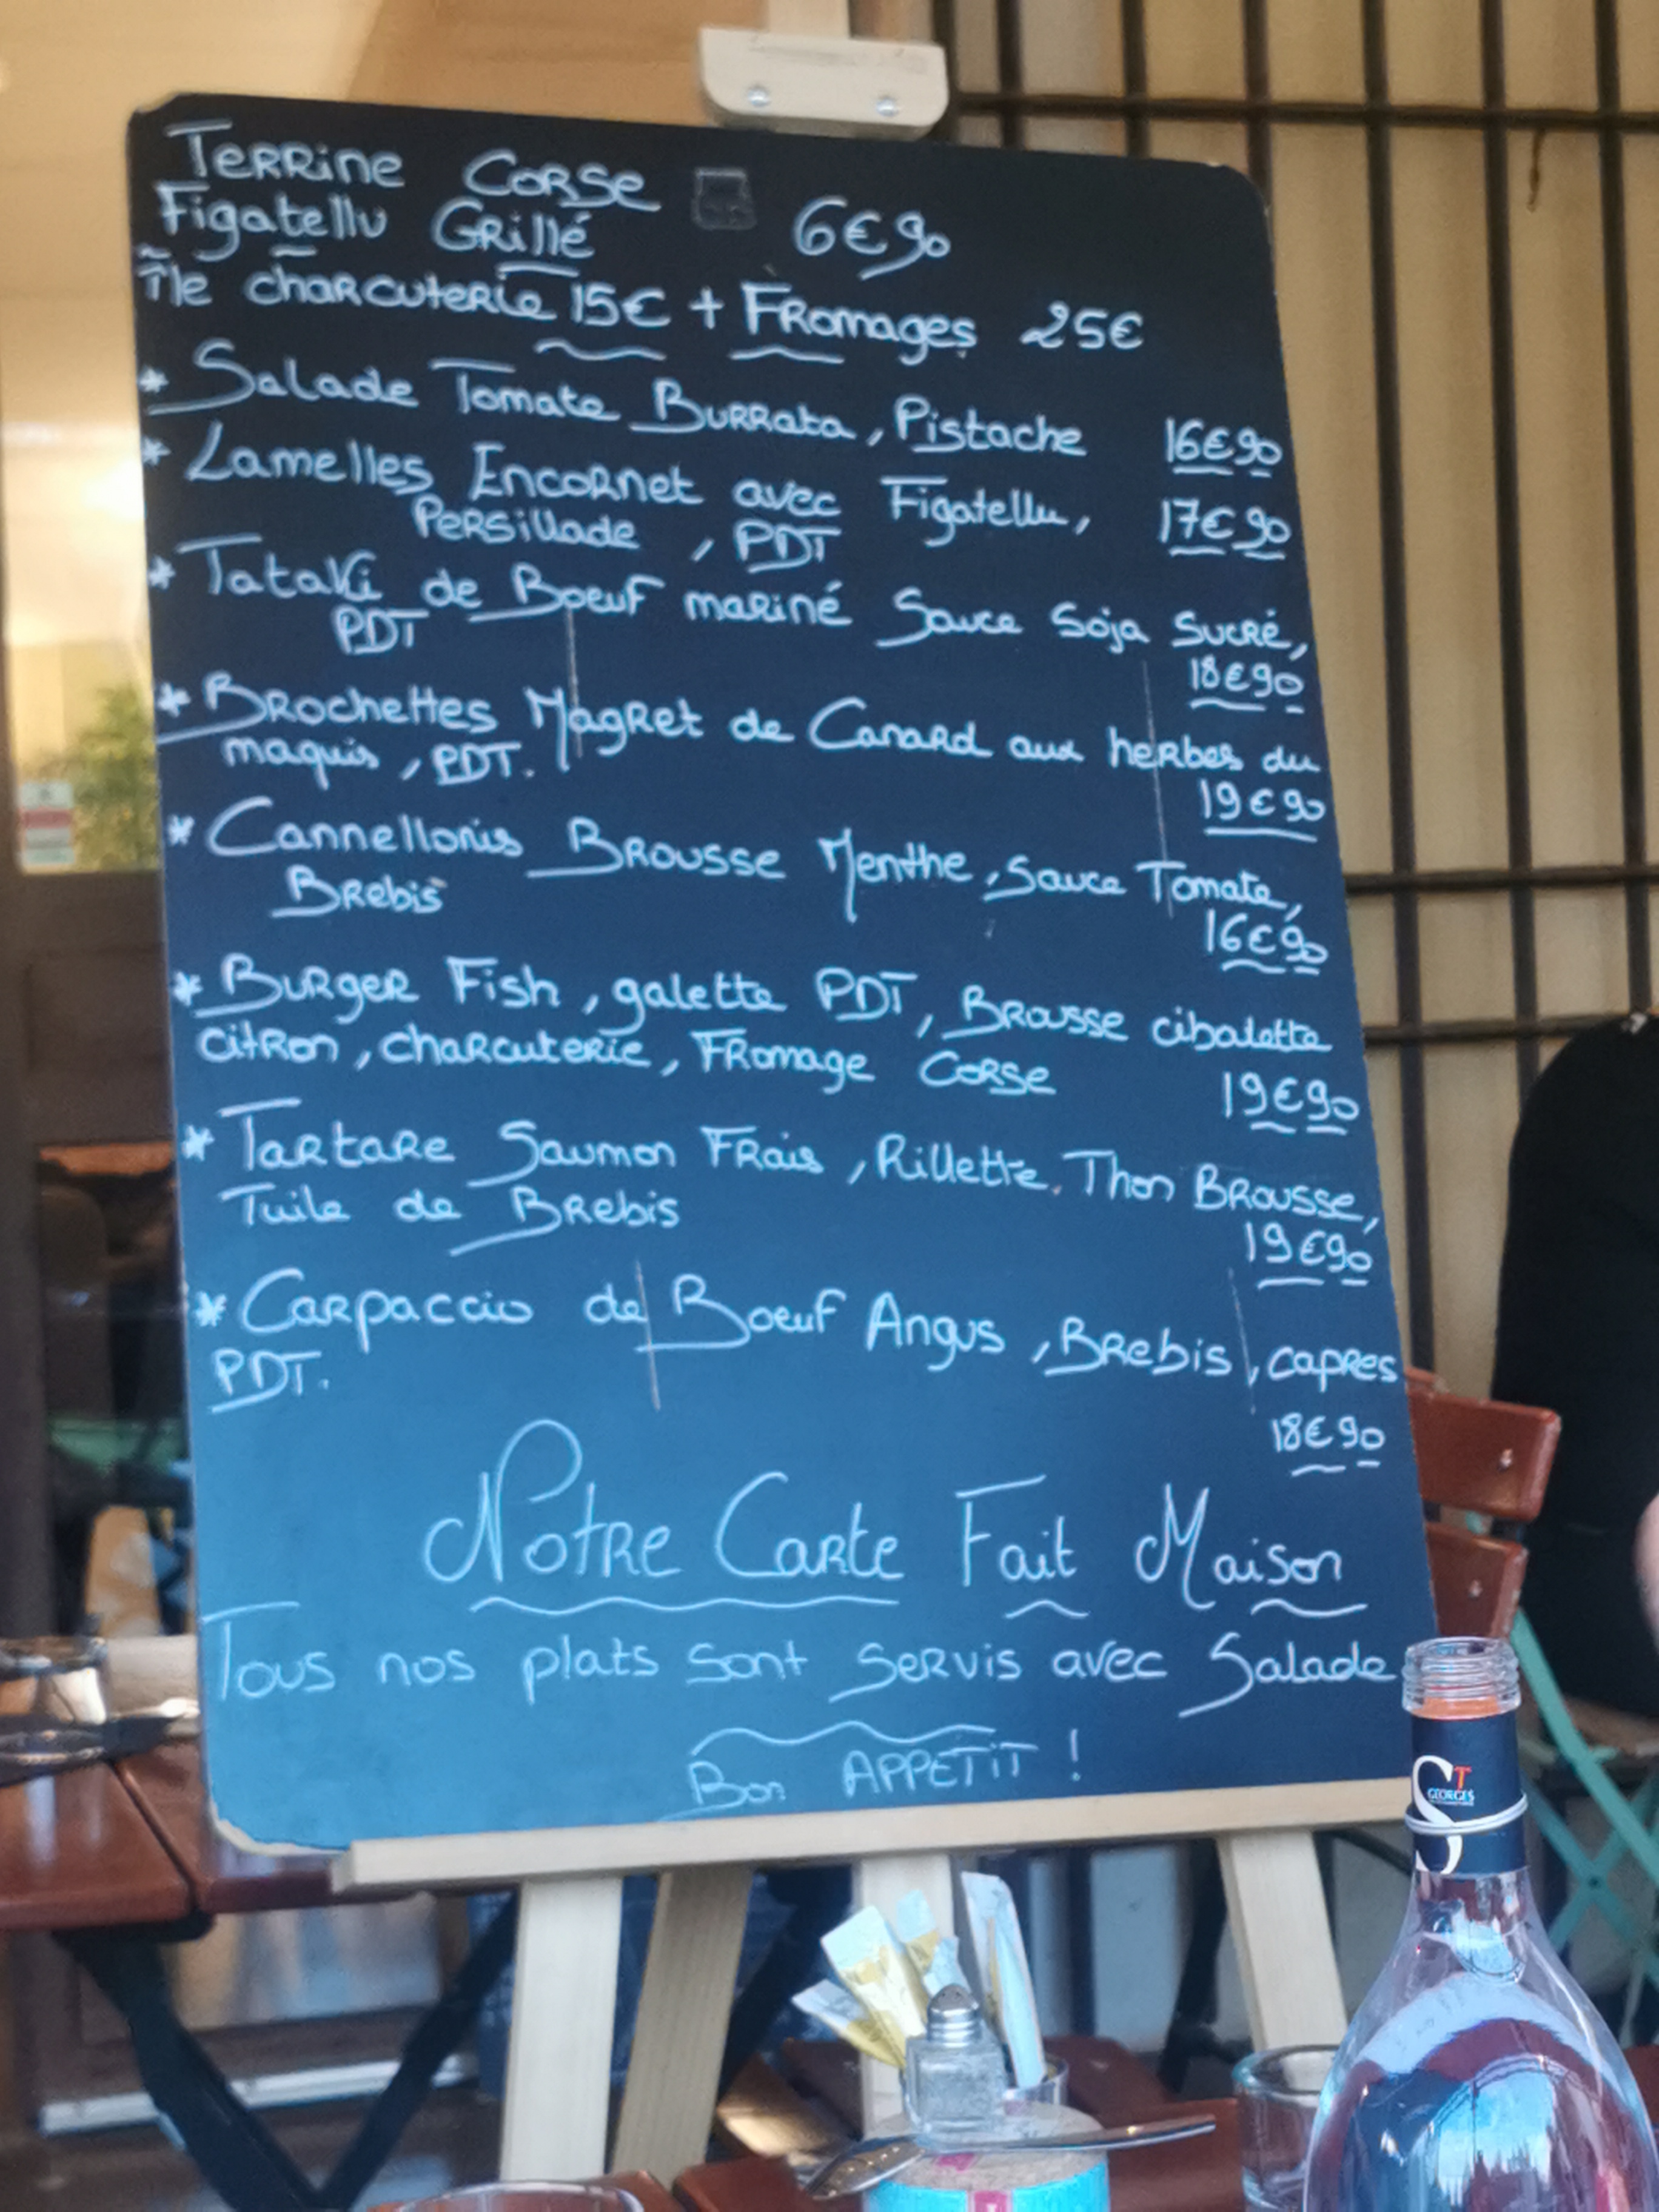 Terrine Corse
Figatellu Grillé 6€90
Île charcuterie 15€ + Fromages 25€
* Salade Tomate Burrata, Pistache 16€90
* Lamelles Encornet avec Figatellu, 17€90
Persillade, PDT
* Tataki de Boeuf mariné Sauce Soja Sucré,
PDT 18€90
* Brochettes Magret de Canard aux herbes du
maquis, PDT. 19€90
* Cannellonis Brousse Menthe, Sauce Tomate,
Brebis 16€90
* Burger Fish, galette PDT, Brousse cibolette
citron, charcuterie, Fromage Corse 19€90
* Tartare Saumon Frais, Rillette Thon Brousse,
Tuile de Brebis 19€90
* Carpaccio de Boeuf Angus, Brebis, capres
PDT. 18€90
Notre Carte Fait Maison
Tous nos plats sont servis avec Salade
Bon APPETIT !
ST
GEORGES